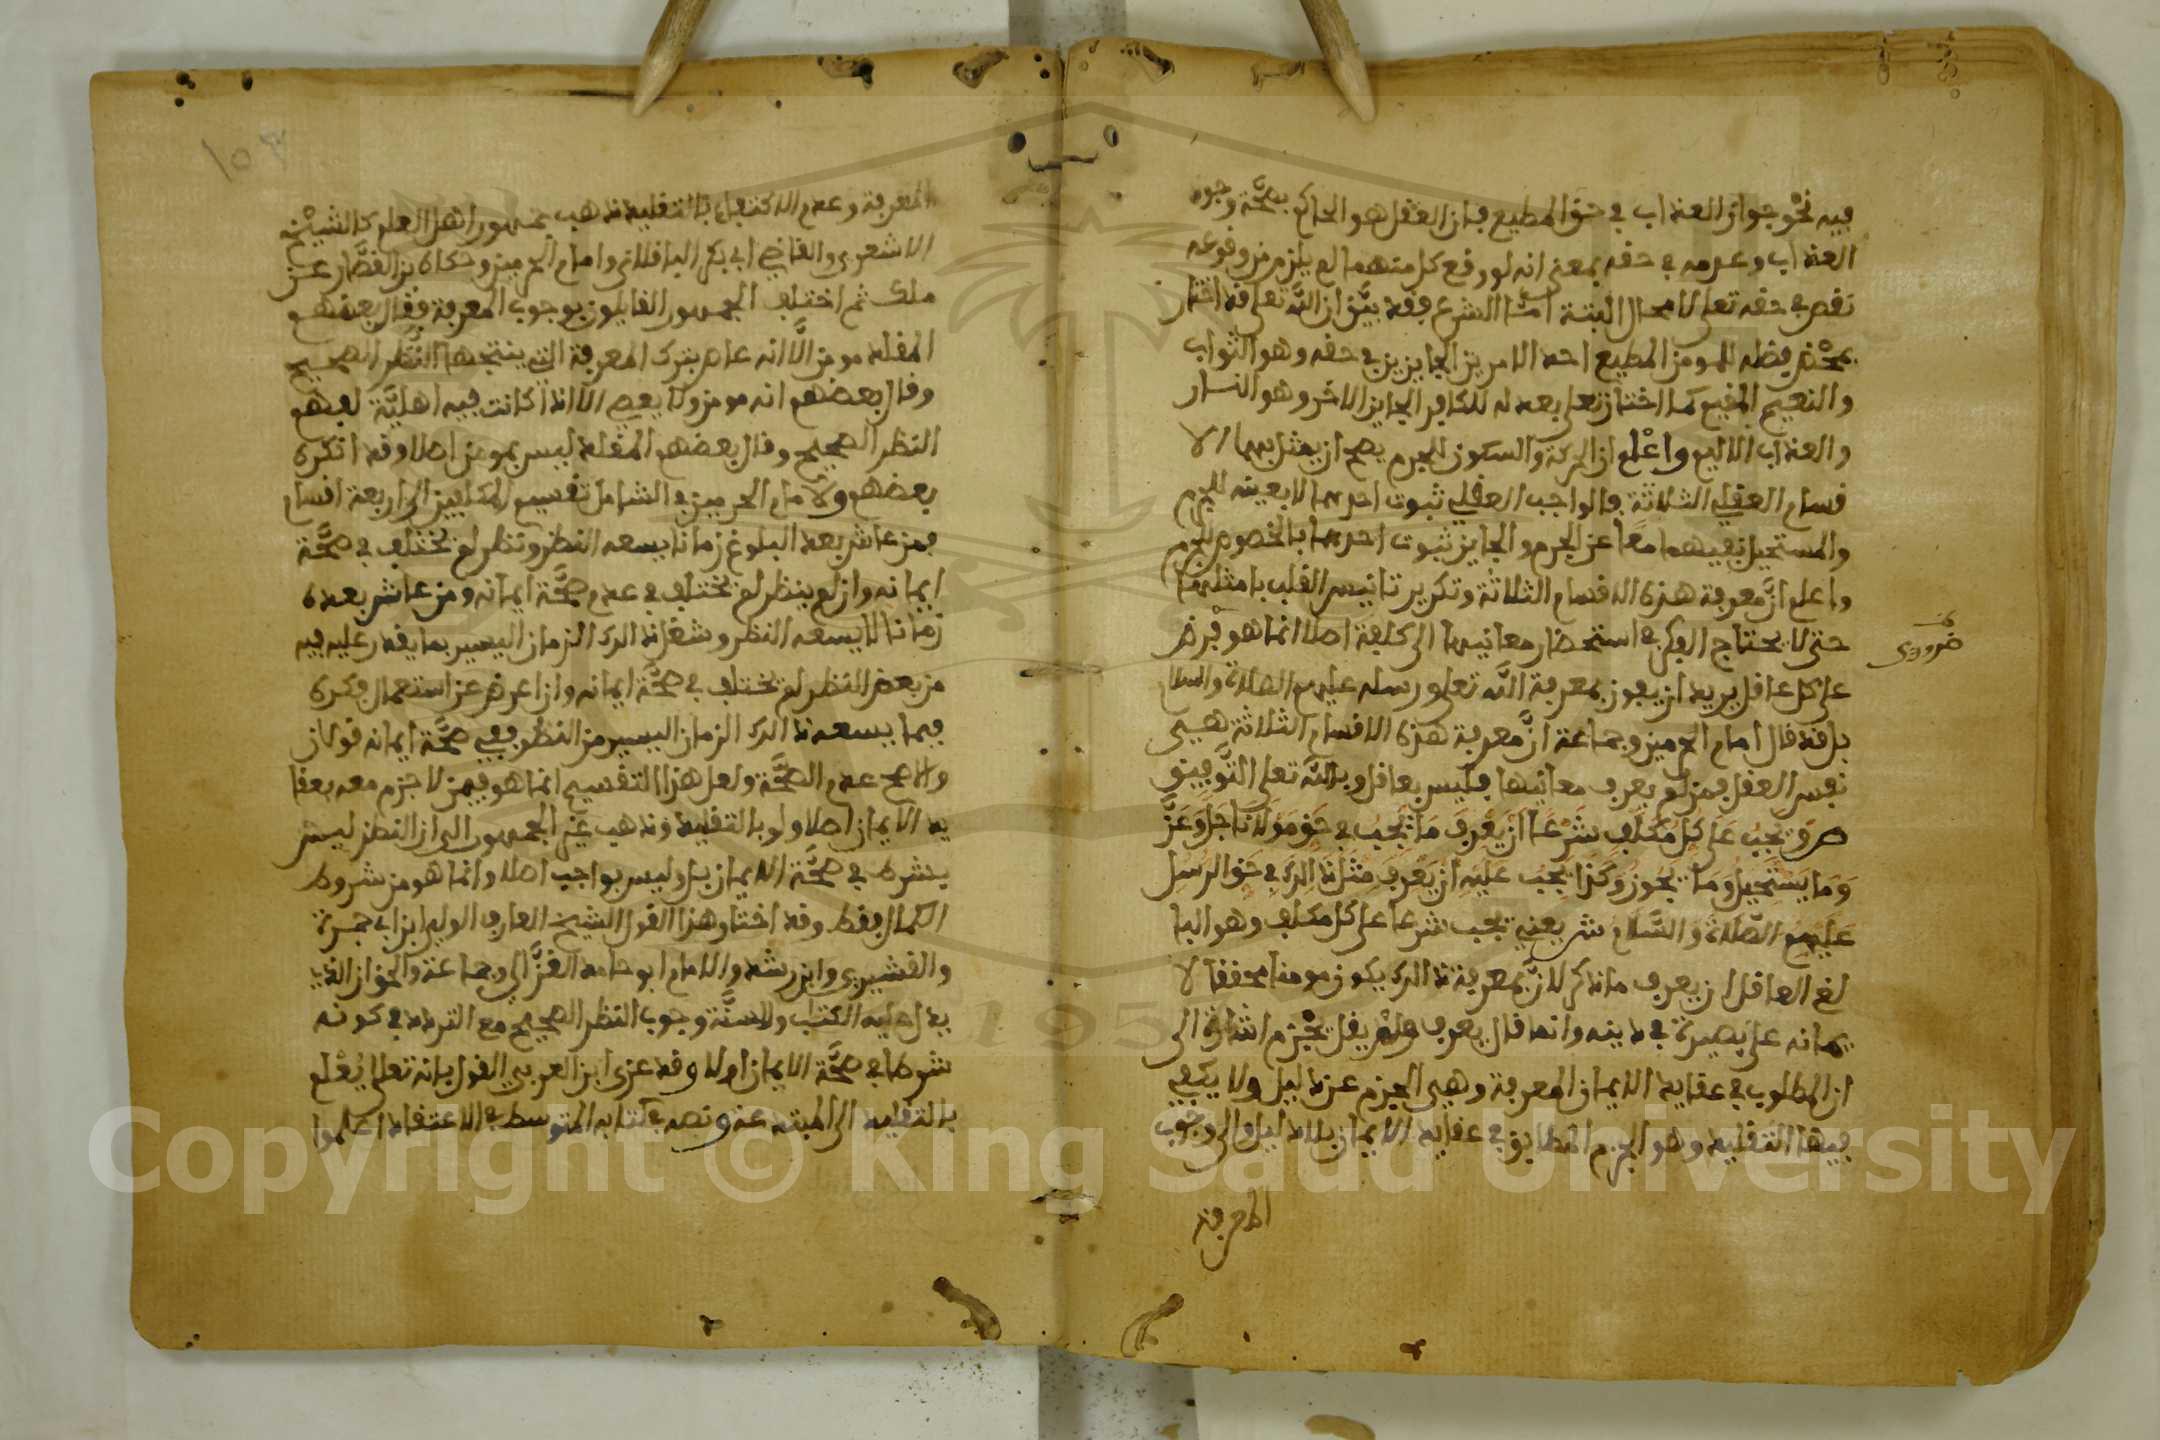 فيه نحو جواز العذاب في حق المطيع فإن العقل هو الحاكم بصحَّة وجود
العذاب وعدمه في حقه بمعنى انه لو وقع كل منهما لم يلزم من وقوعه
نقص في حقه تعلى لا محال البتة امَّا الشرع فقد بيَّن ان اللَّه تعلى قد اختار
بمحْض فضله للمومن المطيع احد الامرين الجايزين في حقه وهو الثواب
والنعيم المقيم كما اختار تعلى بعدله للكافر الجايز الاخر وهو النار
والعذاب الاليم واعْلم ان الحركة والسكون للجرم يصح ان يمثل بهما الا
قسام العقلية الثلاثة فالواجب العقلي ثبوت احدهما لا بعينه للجرم
والمستحيل نفيهما معًا عن الجرم والجايز ثبوت احدهما بالخصوص للجرم
واعلم انَّ معرفة هذه الاقسام الثلاثة وتكرير تانيس القلب بامثلتها
حتى لا يحتاج الفكر في استحضار معانيها الى كلفة اصلا انما هو فرض
ضروري
على كل عاقل يريد ان يفوز بمعرفة اللَّه تعلى ورسله عليهم الصلاة والسلام
بل قد قال امام الحرمين وجماعة انَّ معرفة هذه الاقسام الثلاثة هي
نفس العقل فمن لم يعرف معانيها فليس بعاقل وبالله تعلى التَّوفيق
ص وَيجبُ عَلى كلّ مُكلّف شَرْعًا أنْ يَعْرفَ مَا يَجبُ في حَقّ مَوْلَانَا جَلَّ وَعَزَّ
وَمَا يَسْتَحِيلُ وَمَا يَجُوزُ وَكَذَا يَجبُ عَلَيْه أنْ يَعْرفَ مثْلَ ذَالكَ في حَقّ الرسل
عَلَيهمُ الصَّلَاة وَالسَّلَام ش يعني يجب شرعا على كل مكلف وهو البا
لغ العاقل ان يعرف ما ذكر لانَّ بمعرفة ذالك يكون مومنا محققا لا
يمانه على بصيرة في دينه وانما قال يعرف ولم يقل يجْزم اشارة الى
ان المطلوب في عقايد الايمان المعرفة وهي الجزم عن دليل ولا يكفي
فيها التقليد وهو الجزم المطابق في عقايد الايمان بلا دليل والى وجوب
المعرفة
١٥٣
المعرفة وعدم الاكتفاء بالتقليد ذهب جمهور اهل العلم كالشيْخ
الاشعري والقاضي ابي بكر الباقلاني وامام الحرمين وحكاه بن القصَّار عن
ملك ثم اختلف الجمهور القايلون بوجوب المعرفة فقال بعضهم
المقلد مومن الَّا انه عاص بترك المعرفة التي ينتجها النَّظر الصحيح
وقال بعضهم انه مومن ولا يعص الا اذا كانت فيه اهليَّة لفهم
النظر الصحيح وقال بعضهم المقلد ليس بمومن اصلا وقد انكره
بعضهم ولامام الحرمين في الشامل تقسيم المكلفين الى اربعة اقسام
فمن عاش بعد البلوغ زمانا يسعه النظر ونظر لم يختلف في صحَّة
ايمانه وان لم ينظر لم يختلف في عدم صحَّة ايمانه ومن عاش بعده
زمانا لا يسعه النظر وشغل ذالك الزمان اليسير بما يقدر عليه فيه
من بعض النظر لم يختلف في صحَّة ايمانه وان اعرض عن استعمال فكره
فيما يسعه ذالك الزمان اليسير من النظر ففي صحَّة ايمانه قولان
والاصح عدم الصحَّة ولعل هذا التقسيم انما هو فيمن لا جزم معه بعقا
يد الايمان اصلا ولو بالتقليد وذهب غير الجمهور الى ان النظر ليس
بشرط في صحَّة الايمان بل وليس بواجب اصلا وانما هو من شروط
الكمال فقط وقد اختار هذا القول الشيخ العارف الولي ابن ابي جمرة
والقشيري وابن رشد والامام ابو حامد الغزَّالي وجماعة والحق ان الذي
يدل عليه الكتاب والسنَّة وجوب النظر الصحيح مع التردد في كونه
شرطا في صحَّة الايمان او لا وقد عزى ابن العربي القول بانه تعلى يُعْلم
بالتقليد الى المبتدعة ونصه في كتابه المتوسط في الاعتقاد اعلموا
Copyright © King Saud University
1957